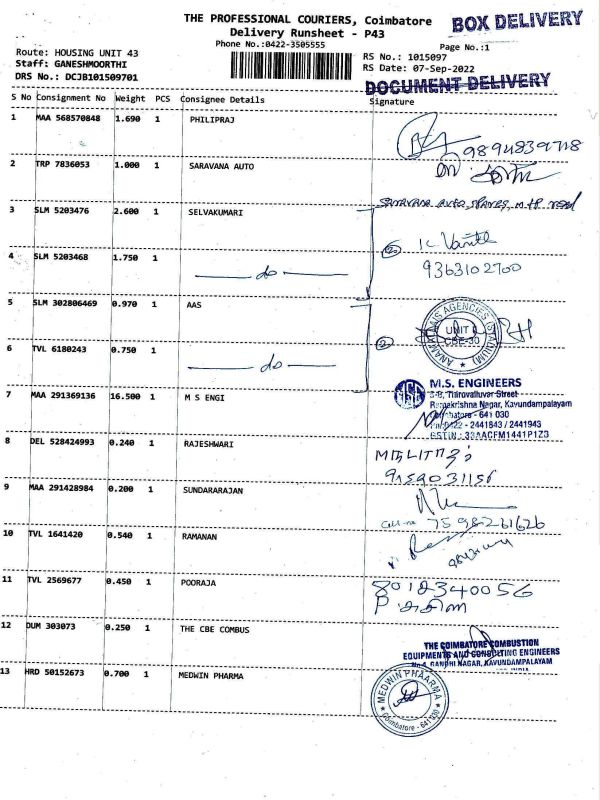 THE PROFESSIONAL COURIERS, Coimbatore
BOX DELIVERY
Delivery Runsheet - P43
Phone No.:0422-3505555
Page No.:1
Route: HOUSING UNIT 43
RS No.: 1015097
Staff: GANESHMOORTHI
RS Date: 07-Sep-2022
DRS No.: DCJB101509701
DOCUMENT DELIVERY
S No Consignment No Weight PCS Consignee Details Signature
1 MAA 568570848 1.690 1 PHILIPRAJ
9894839718
2 TRP 7836053 1.000 1 SARAVANA AUTO
Saravana auto spares, mtp road
3 SLM 5203476 2.600 1 SELVAKUMARI
2 K Vanith
4 SLM 5203468 1.750 1 do
9363102700
5 SLM 302806469 0.970 1 AAS
2 UNIT
CBE-30
6 TVL 6180243 0.750 1 do
7 MAA 291369136 16.500 1 M S ENGI
M.S. ENGINEERS
3-B, Thiruvalluvar Street
Ramakrishna Nagar, Kavundampalayam
Coimbatore - 641 030
Ph: 0422 - 2441843 / 2441943
GSTIN : 33AACFM1441P1Z3
8 DEL 528424993 0.240 1 RAJESHWARI
9159031156
9 MAA 291428984 0.200 1 SUNDARARAJAN
7598261626
10 TVL 1641420 0.540 1 RAMANAN
11 TVL 2569677 0.450 1 POORAJA
8012340056
12 DUM 303073 0.250 1 THE CBE COMBUS
THE COIMBATORE COMBUSTION
EQUIPMENTS AND CONSULTING ENGINEERS
No.4, GANDHI NAGAR, KAVUNDAMPALAYAM
13 HRD 50152673 0.700 1 MEDWIN PHARMA
MEDWIN PHAARMA
Coimbatore - 641 030